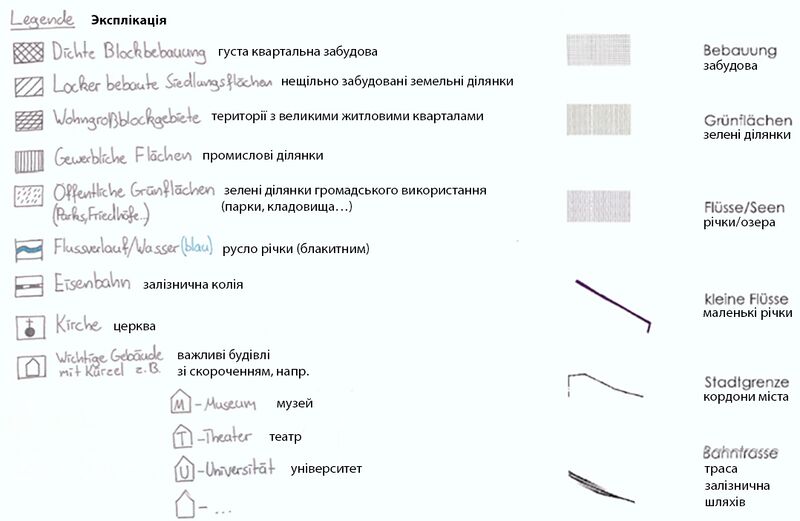 Legende Эксплікація
Dichte Blockbebauung густа квартальна забудова
Locker bebaute Siedlungsflächen нещільно забудовані земельні ділянки
Wohngroßblockgebiete території з великими житловими кварталами
Gewerbliche Flächen промислові ділянки
Öffentliche Grünflächen зелені ділянки громадського використання
(Parks, Friedhöfe...) (парки, кладовища...)
Flussverlauf/Wasser (blau) русло річки (блакитним)
Eisenbahn залізнична колія
Kirche церква
Wichtige Gebäude важливі будівлі
mit Kürzel z.B. зі скороченням, напр.
M - Museum музей
T - Theater театр
U - Universität університет
- ...
Bebauung
забудова
Grünflächen
зелені ділянки
Flüsse/Seen
річки/озера
kleine Flüsse
маленькі річки
Stadtgrenze
кордони міста
Bahntrasse
траса
залізнична
шляхів